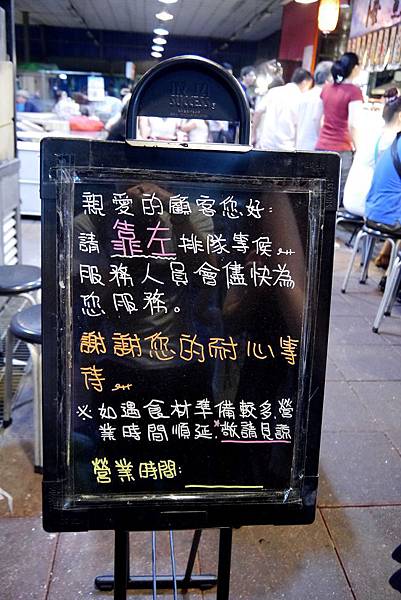 親愛的顧客您好:
請靠左排隊等候
服務人員會儘快為
您服務。
謝謝您的耐心等
待
※如遇食材準備較多,營
業時間順延,*敬請見諒
營業時間: